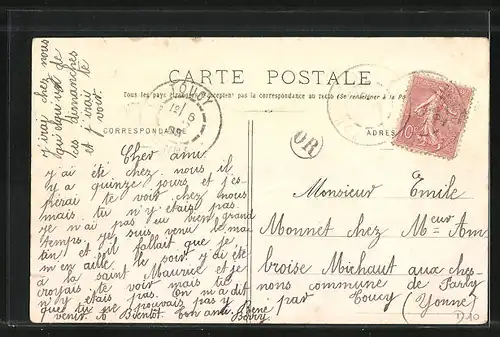 CARTE POSTALE
Tous les pays étrangers n'acceptent pas la correspondance au recto (Se renseigner à la Po
CORRESPONDANCE
ADRES
TOUCY
OR
Cher ami
j'ai été chez nous il
y a quinze jours et j'es-
pérai te voir chez nous
mais tu n'y étais pas
je n'ai pas eu bien grand
temps, je suis venu le ma
tin et il fallait que je
m'en aille le soir, j'ai été
à la saint Maurice et je
croyais te voir mais tu
n'y étais pas. On m'a dit
que tu ne pouvais pas y
venir. A Bientôt. Ton ami René
Berry
j'irai chez nous
de
les dimanches
et j'irai te
voir.
Monsieur Emile
Monnet chez Meur Am
broise Michaut aux ches-
nons commune de Parly
par Toucy (Yonne)
D10